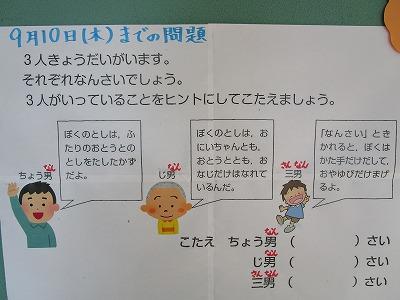 9月10日(木)までの問題
3人きょうだいがいます。
それぞれなんさいでしょう。
3人がいっていることをヒントにしてこたえましょう。
ぼくのとしは、ふ
たりのおとうとの
としをたしたかず
だよ。
ちょう男
なん
ぼくのとしは、お
にいちゃんとも、
おとうととも、お
なじだけはなれて
いるんだ。
じ男
なん
「なんさい」とき
かれると、ぼくは
かた手だけだして、
おやゆびだけまげ
るよ。
三男
さん なん
こたえ ちょう男 ( )さい
なん
じ男 ( )さい
なん
三男 ( )さい
さん なん